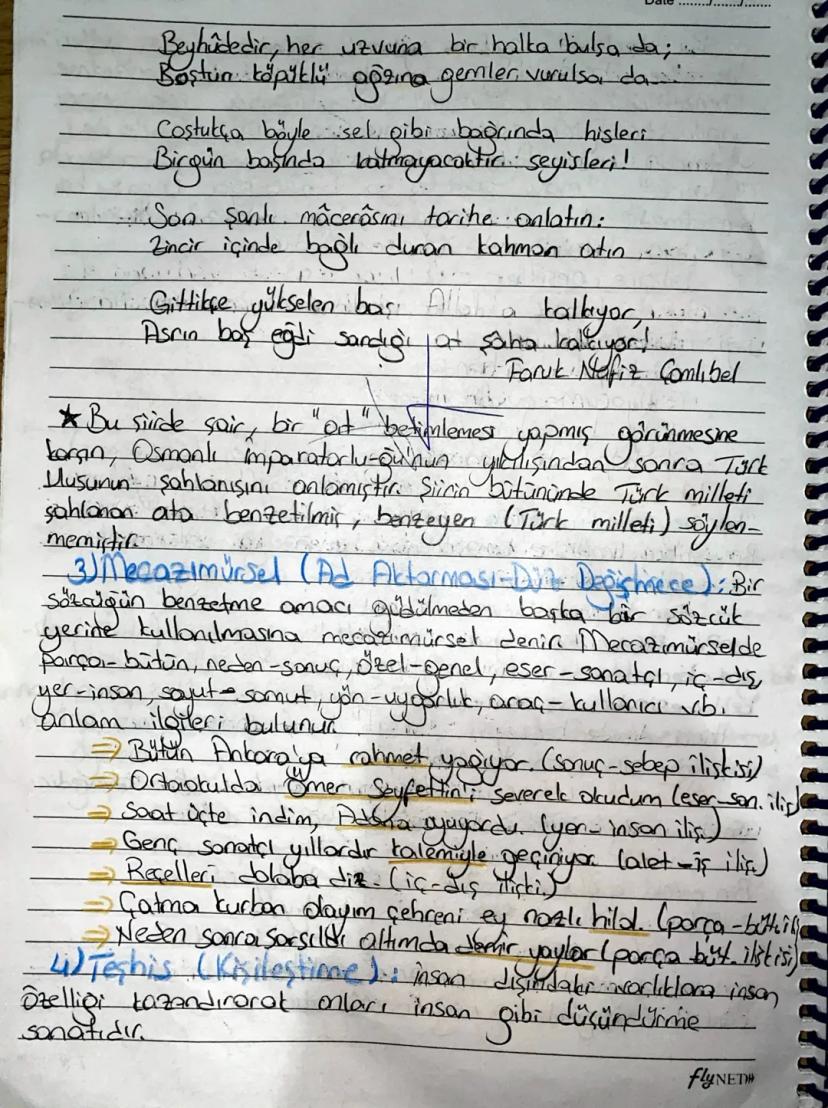 Date ......./......./.......
Beyhûdedir, her uzvuna bir halka bulsa da;
Boştur köpüklü ağzına gemler vurulsa da...
Coştukça böyle sel gibi bağrında hisleri
Birgün başında kalmayacaktır seyisleri!
Son şanlı mâcerâsını tarihe anlatın:
Zincir içinde bağlı duran kahman atın
Gittikçe yükselen baş Allah'a kalkıyor,
Asrın baş eğdi sandığı at şaha kalkıyor!
Faruk Nafiz Çamlıbel
★ Bu şiirde şair, bir "at" betimlemesi yapmış görünmesine
karşın, Osmanlı İmparatorlu-ğu'nun yıkılışından sonra Türk
Ulusunun şahlanışını anlamıştır. Şiirin bütününde Türk milleti
şahlanan ata benzetilmiş, benzeyen (Türk milleti) söylen-
memiştir.
3) Mecazımürsel (Ad Aktarması-Düz Değişmece): Bir
sözcüğün benzetme amacı güdülmeden başka bir sözcük
yerine kullanılmasına mecazımürsel denir. Mecazımürselde
parça-bütün, neden-sonuç, özel-genel, eser-sanatçı, iç-dış,
yer-insan, soyut-somut, yön-uygarlık, araç-kullanıcı vb.
anlam ilgileri bulunur.
⇒ Bütün Ankara'ya rahmet yağıyor. (sonuç-sebep ilişkisi)
⇒ Ortaokulda Ömer Seyfettin'i severek okudum (eser-san. iliş)
⇒ Saat üçte indim, Adana uyuyordu. (yer-insan iliş.)
⇒ Genç sanatçı yıllardır kalemiyle geçiniyor. (alet-iş iliş.)
⇒ Reçelleri dolaba diz. (iç-dış ilişki.)
⇒ Çatma kurban olayım çehreni ey nazlı hilal. (parça-büt. iliş
⇒ Neden sonra sarsıldı altımda demir yaylar (parça büt. ilişkisi)
4) Teşhis (Kişileştirme): insan dışındaki varlıklara insan
özelliği kazandırarak onları insan gibi düşündürme
sanatıdır.
flyNET